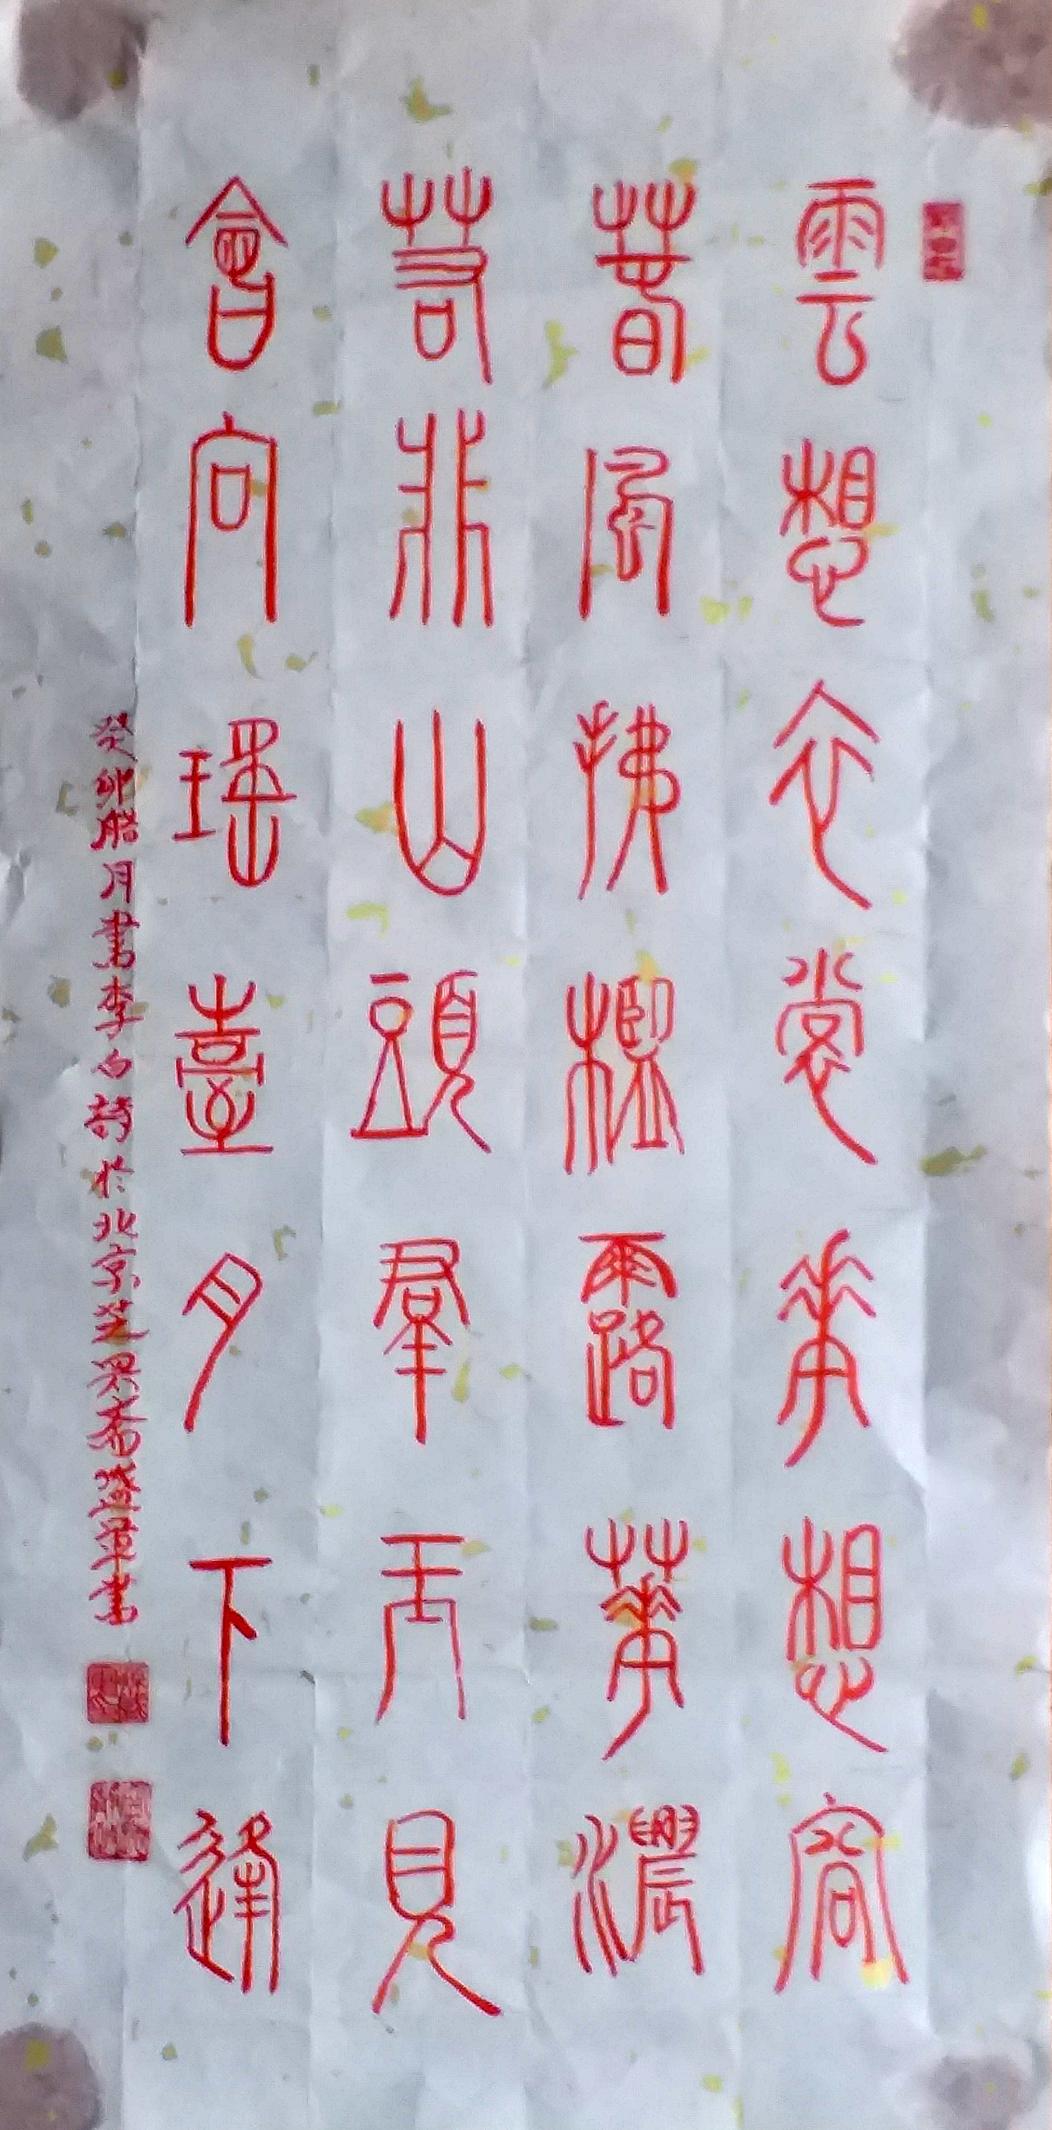 雲想衣裳華想容
萅風拂檻露華濃
若非山頭羣玉見
會向瑤臺月下逢
癸卯腊月書李白詩於北京